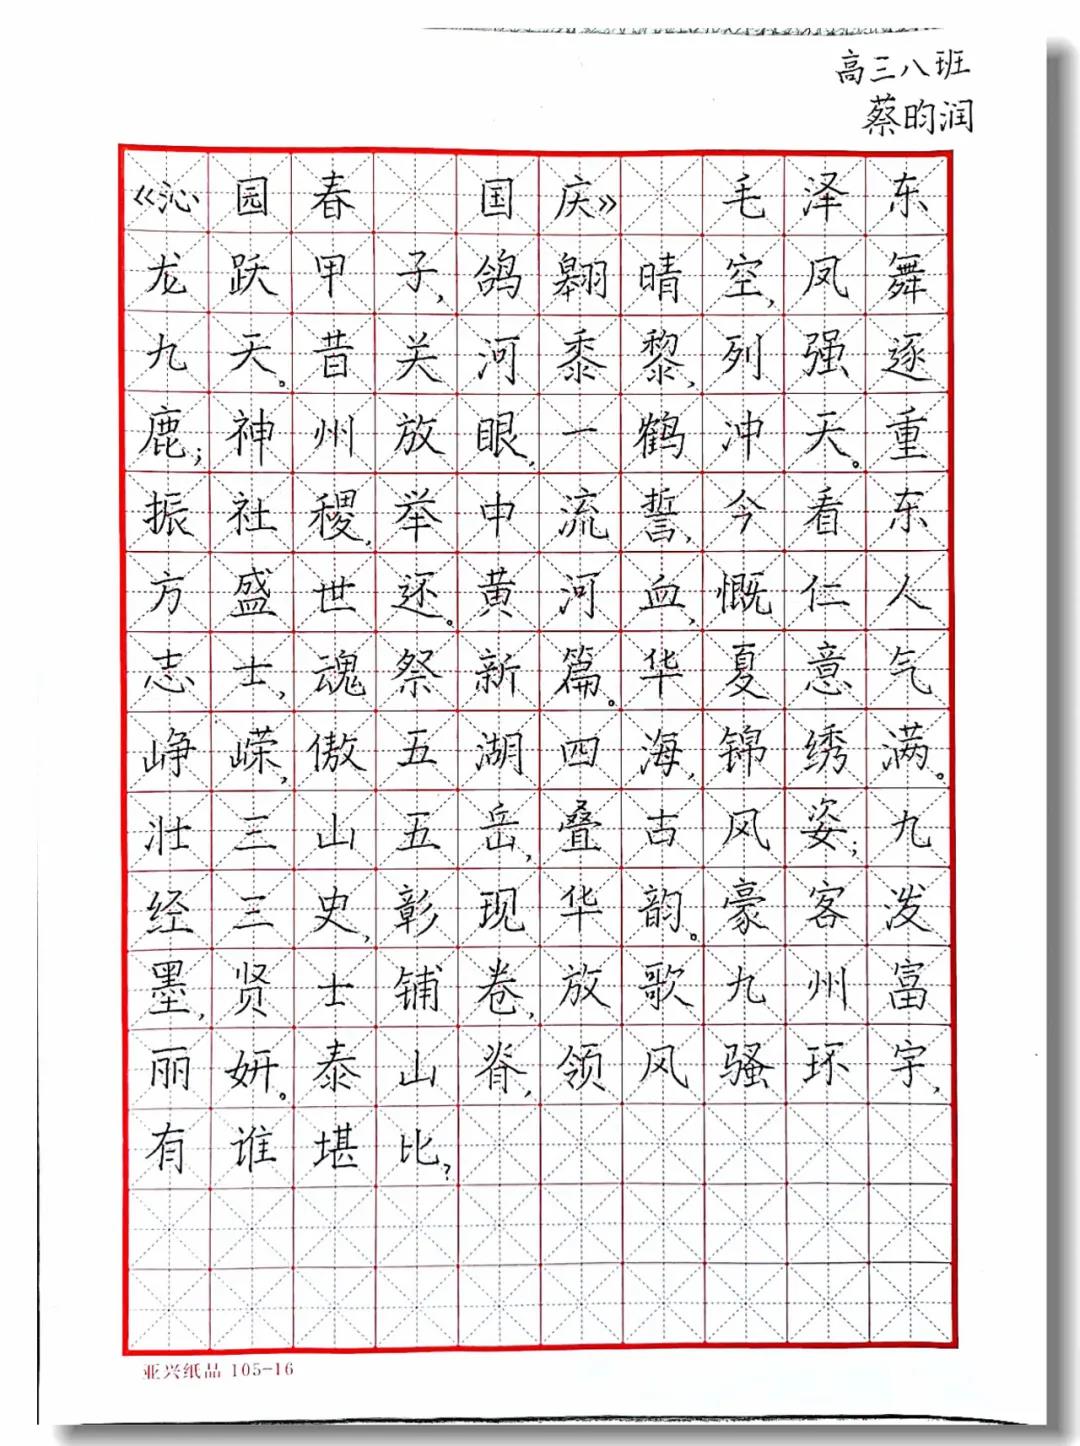 高三八班
蔡昀润
《沁园春 国庆》 毛泽东
龙跃甲子,鸽翱晴空,凤舞
九天。昔关河黍黎,列强逐
鹿;神州放眼,一鹤冲天。重
振社稷,举中流誓,今看东
方盛世还。黄河血,慨仁人
志士,魂祭新篇。华夏意气
峥嵘,傲五湖四海,锦绣满。
壮三山五岳,叠古风姿;九
经三史,彰现华韵。豪客泼
墨,贤士铺卷,放歌九州富
丽妍。泰山脊,领风骚环宇,
有谁堪比?
亚兴纸品 105-16